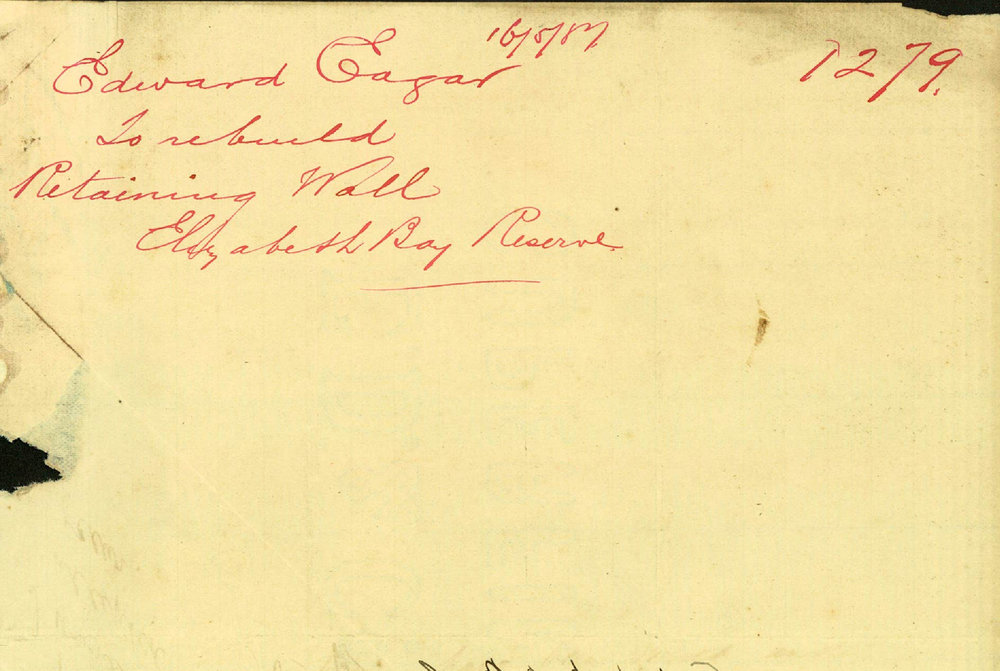 16/5/87
Edward Eagar
1279.
To rebuild
Retaining Wall
Elizabeth Bay Reserve